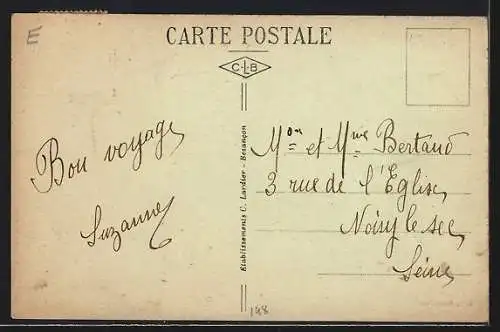 E
CARTE POSTALE
C·L·B
Bon voyage
Suzanne
Etablissements C. Lardier - Besançon
Mon et Mme Bertaud
3 rue de l'Eglise
Noisy le sec
Seine
148